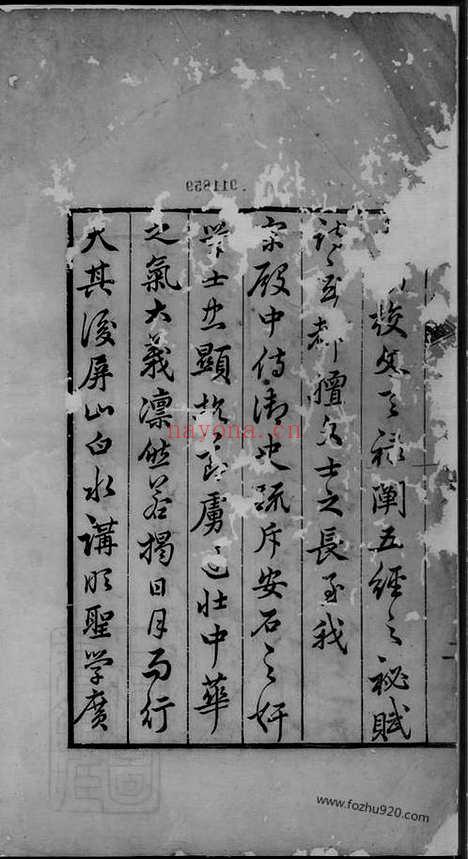 校文天祿闡五經之秘賦
都擅士之長至我
宗殿中侍御史疏斥安石之奸
學士忠顯虜壯中華
之氣大義凜然若揭日月而行
大其後屏山白水講明聖學廣
nayona.cn
www.fozhu920.com